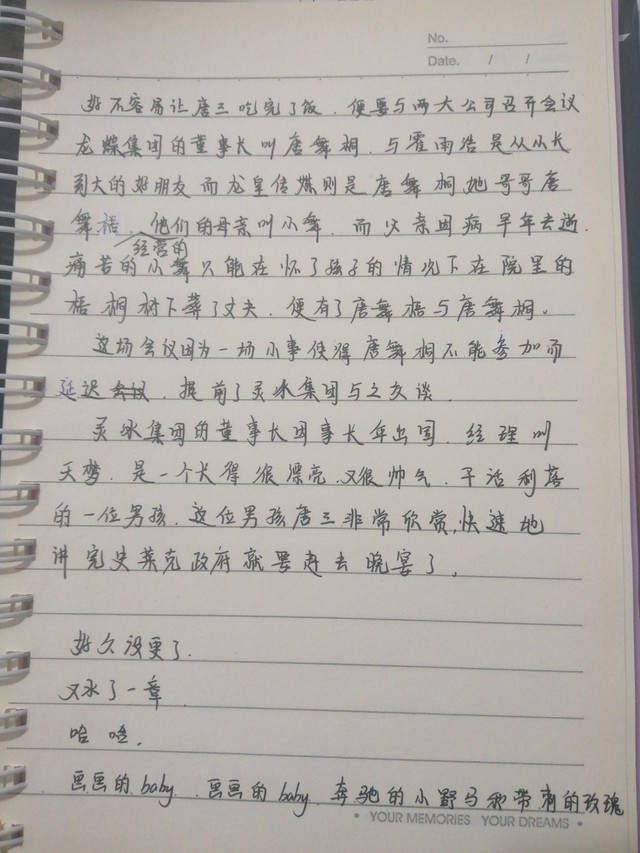 No.
Date. / /
好不容易让唐三吃完了饭，便要与两大公司召开会议
龙媒集团的董事长叫唐舞桐，与霍雨浩是从小长
到大的好朋友而龙皇传媒则是唐舞桐她哥哥唐
舞梧，他们的母亲叫小舞，而父亲因病早年去逝.
经营的
痛苦的小舞只能在怀了孩子的情况下在院里的
梧桐树下葬了丈夫，便有了唐舞梧与唐舞桐。
这场会议因为一场小事使得唐舞桐不能参加而
延迟会议，提前了灵冰集团与之交谈.
灵冰集团的董事长因事长年出国，经理叫
天梦，是一个长得很漂亮，又很帅气，干活利落
的一位男孩，这位男孩唐三非常欣赏，快速地
讲完史莱克政府就要赶去晚宴了。
好久没更了.
又水了一章
哈哈，
画画的baby，画画的baby，奔驰的小野马和带刺的玫瑰
• YOUR MEMORIES YOUR DREAMS •